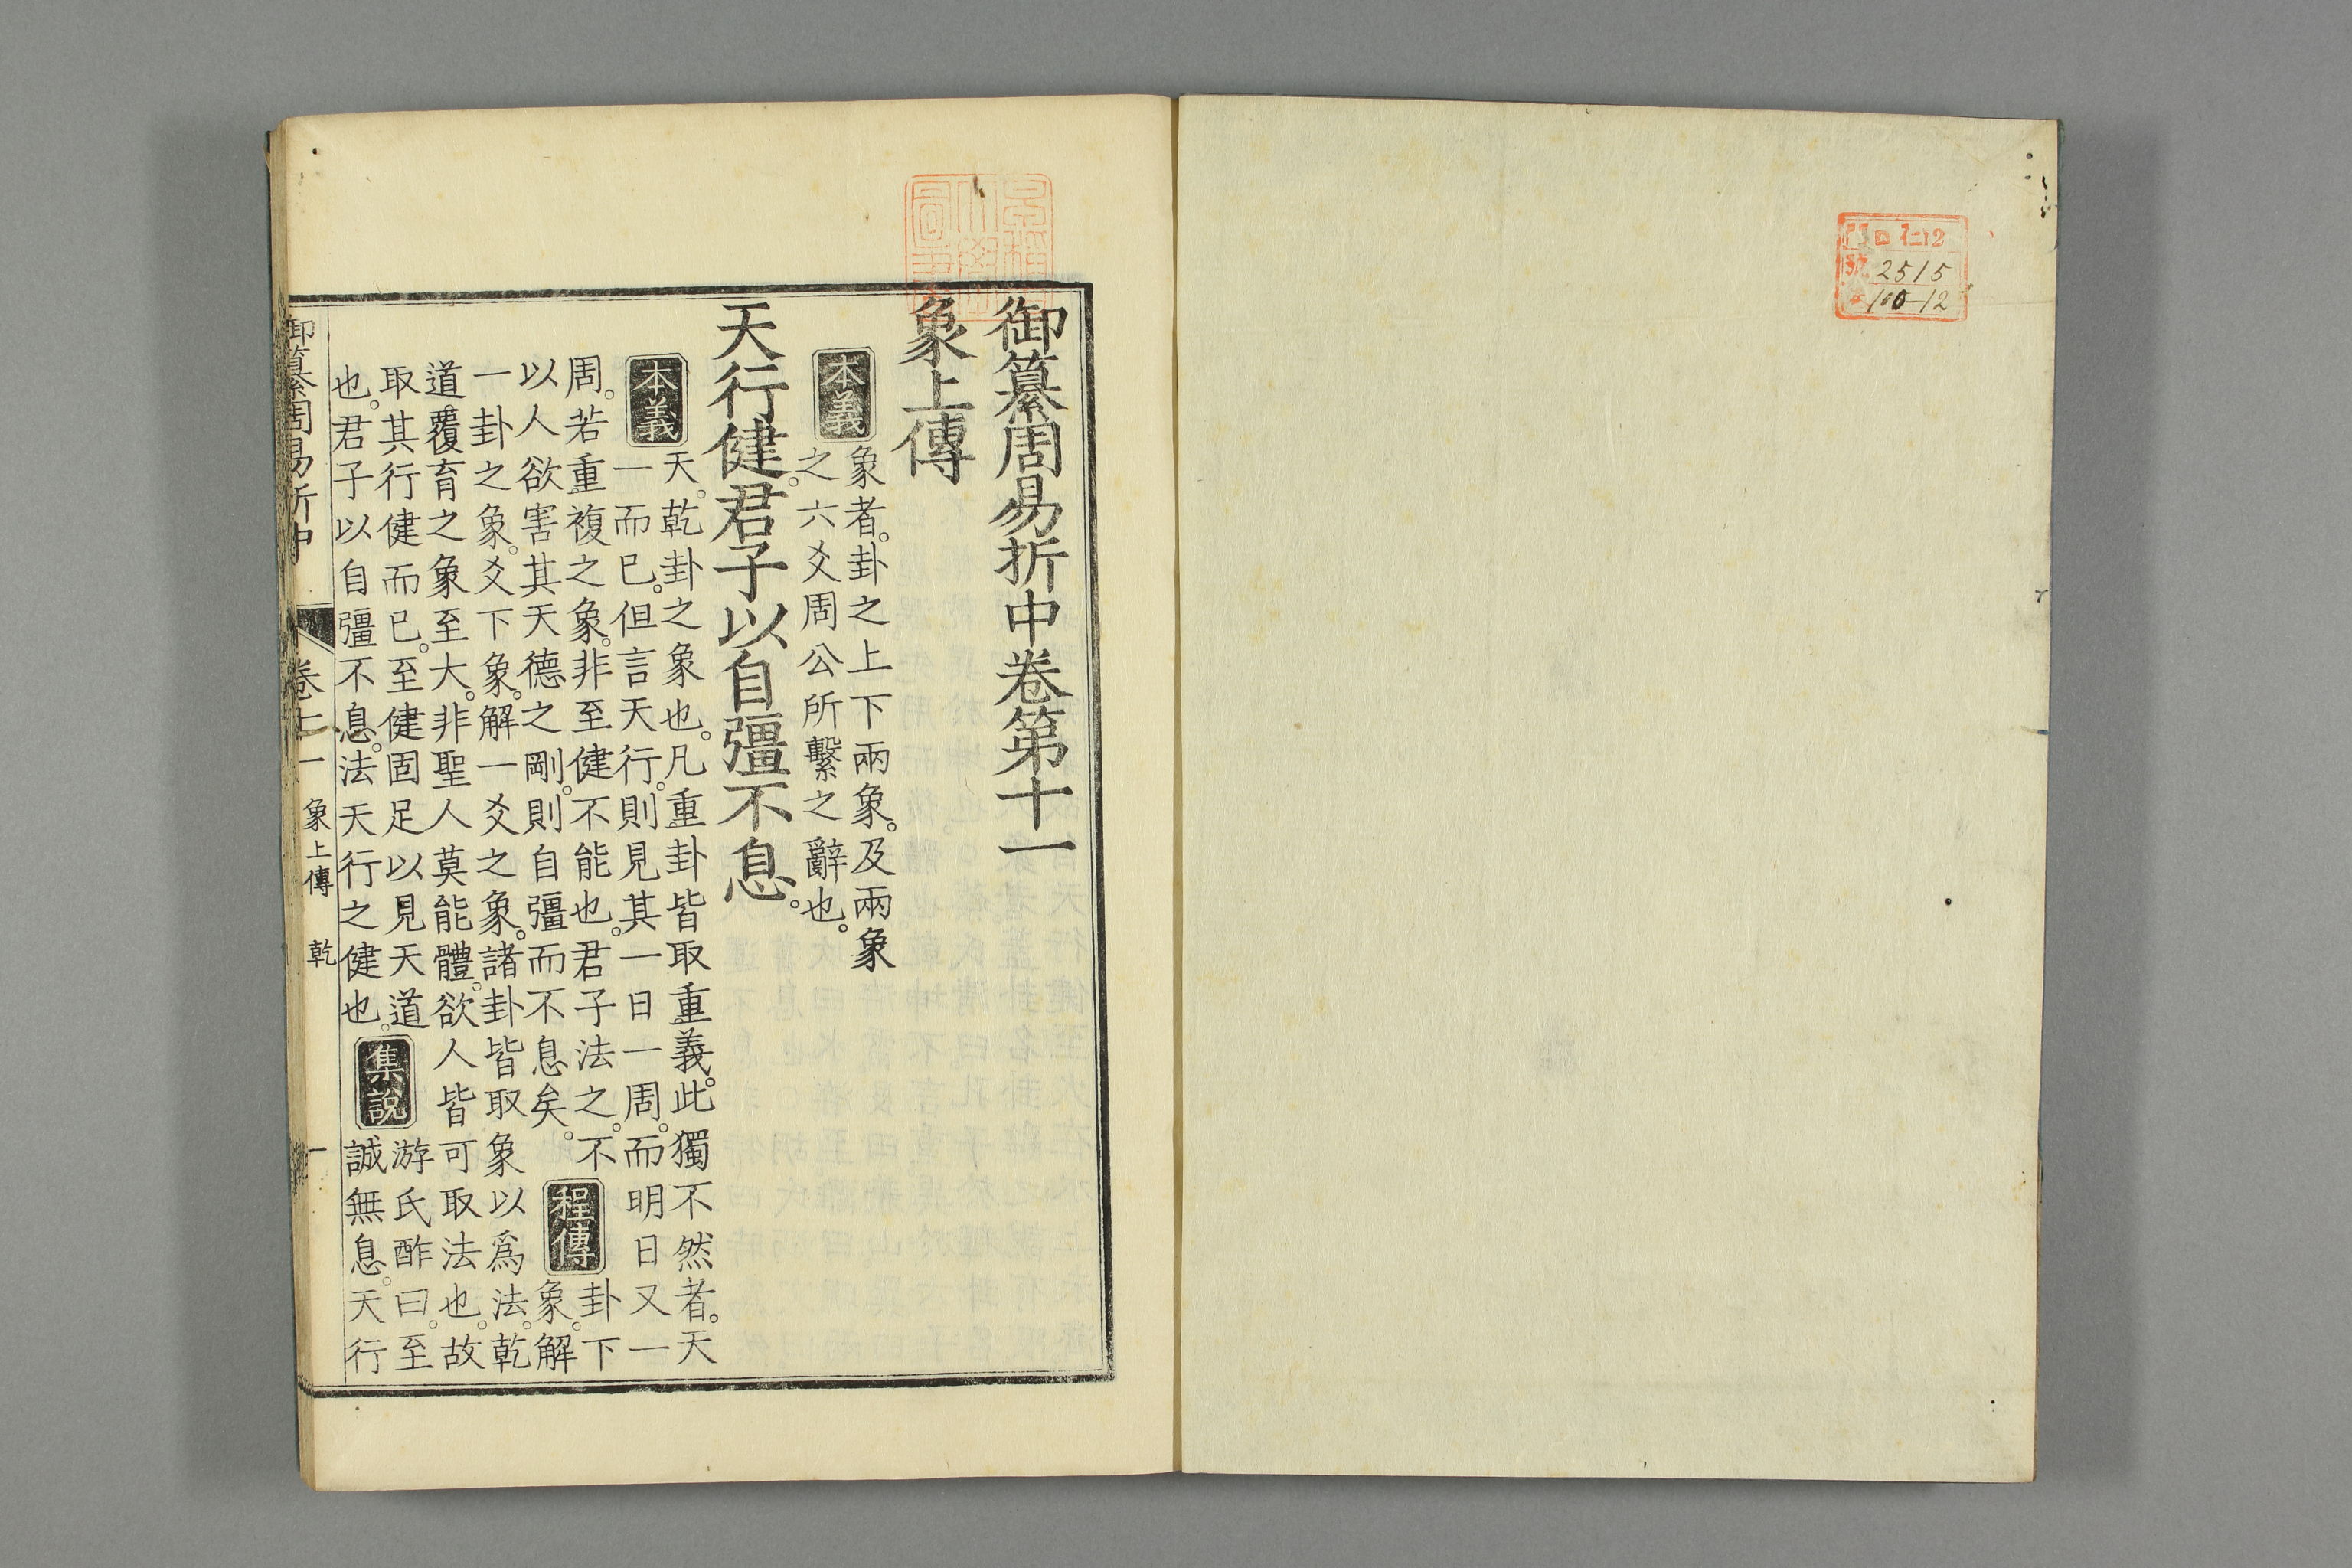 門ロ仁12
號 2515
100-12
御纂周易折中卷第十一
象上傳
本義
象者。卦之上下兩象。及兩象
之六爻周公所繫之辭也。
天行健。君子以自彊不息。
本義
天。乾卦之象也。凡重卦皆取重義。此獨不然者。天
一而已。但言天行。則見其一日一周。而明日又一
周。若重複之象。非至健不能也。君子法之。不
以人欲害其天德之剛。則自彊而不息矣。
程傳
卦下
象。解
一卦之象。爻下象。解一爻之象。諸卦皆取象以爲法。乾
道。覆育之象至大。非聖人莫能體。欲人皆可取法也。故
取其行健而已。至健固足以見天道
也。君子以自彊不息。法天行之健也。
集說
游氏酢曰。至
誠無息。天行
御纂周易折中 卷十一 象上傳 乾 一